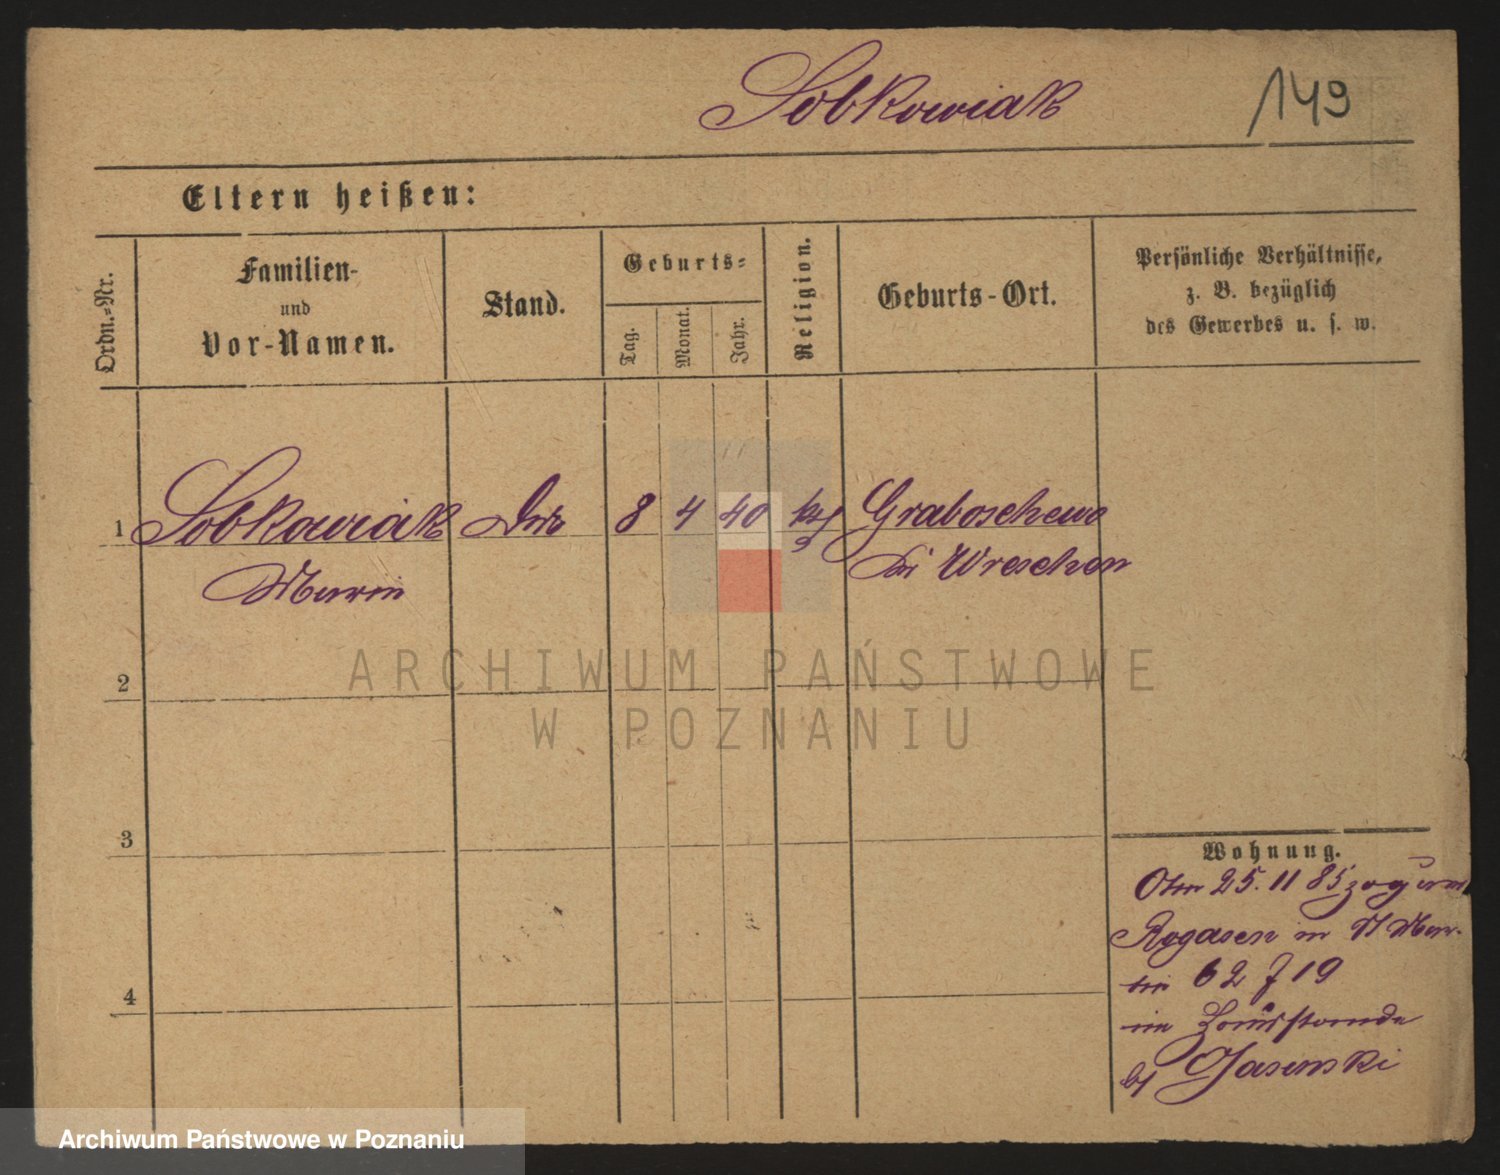 Sobkowiak 149
Eltern heißen:
Ordn.-Nr.
Familien-
und
Vor-Namen.
Stand.
Geburts-
Tag.
Monat.
Jahr.
Religion.
Geburts-Ort.
Persönliche Verhältnisse,
z. B. bezüglich
des Gewerbes u. s. w.
1 Sobkowiak 8 4 40 Graboschewo
bei Wreschen
2
3
4
Wohnung.
25. 11 85 zog
Rogasen in St Mar-
tin 62 19
im
bei Jasinski
ARCHIWUM PAŃSTWOWE
W POZNANIU
Archiwum Państwowe w Poznaniu